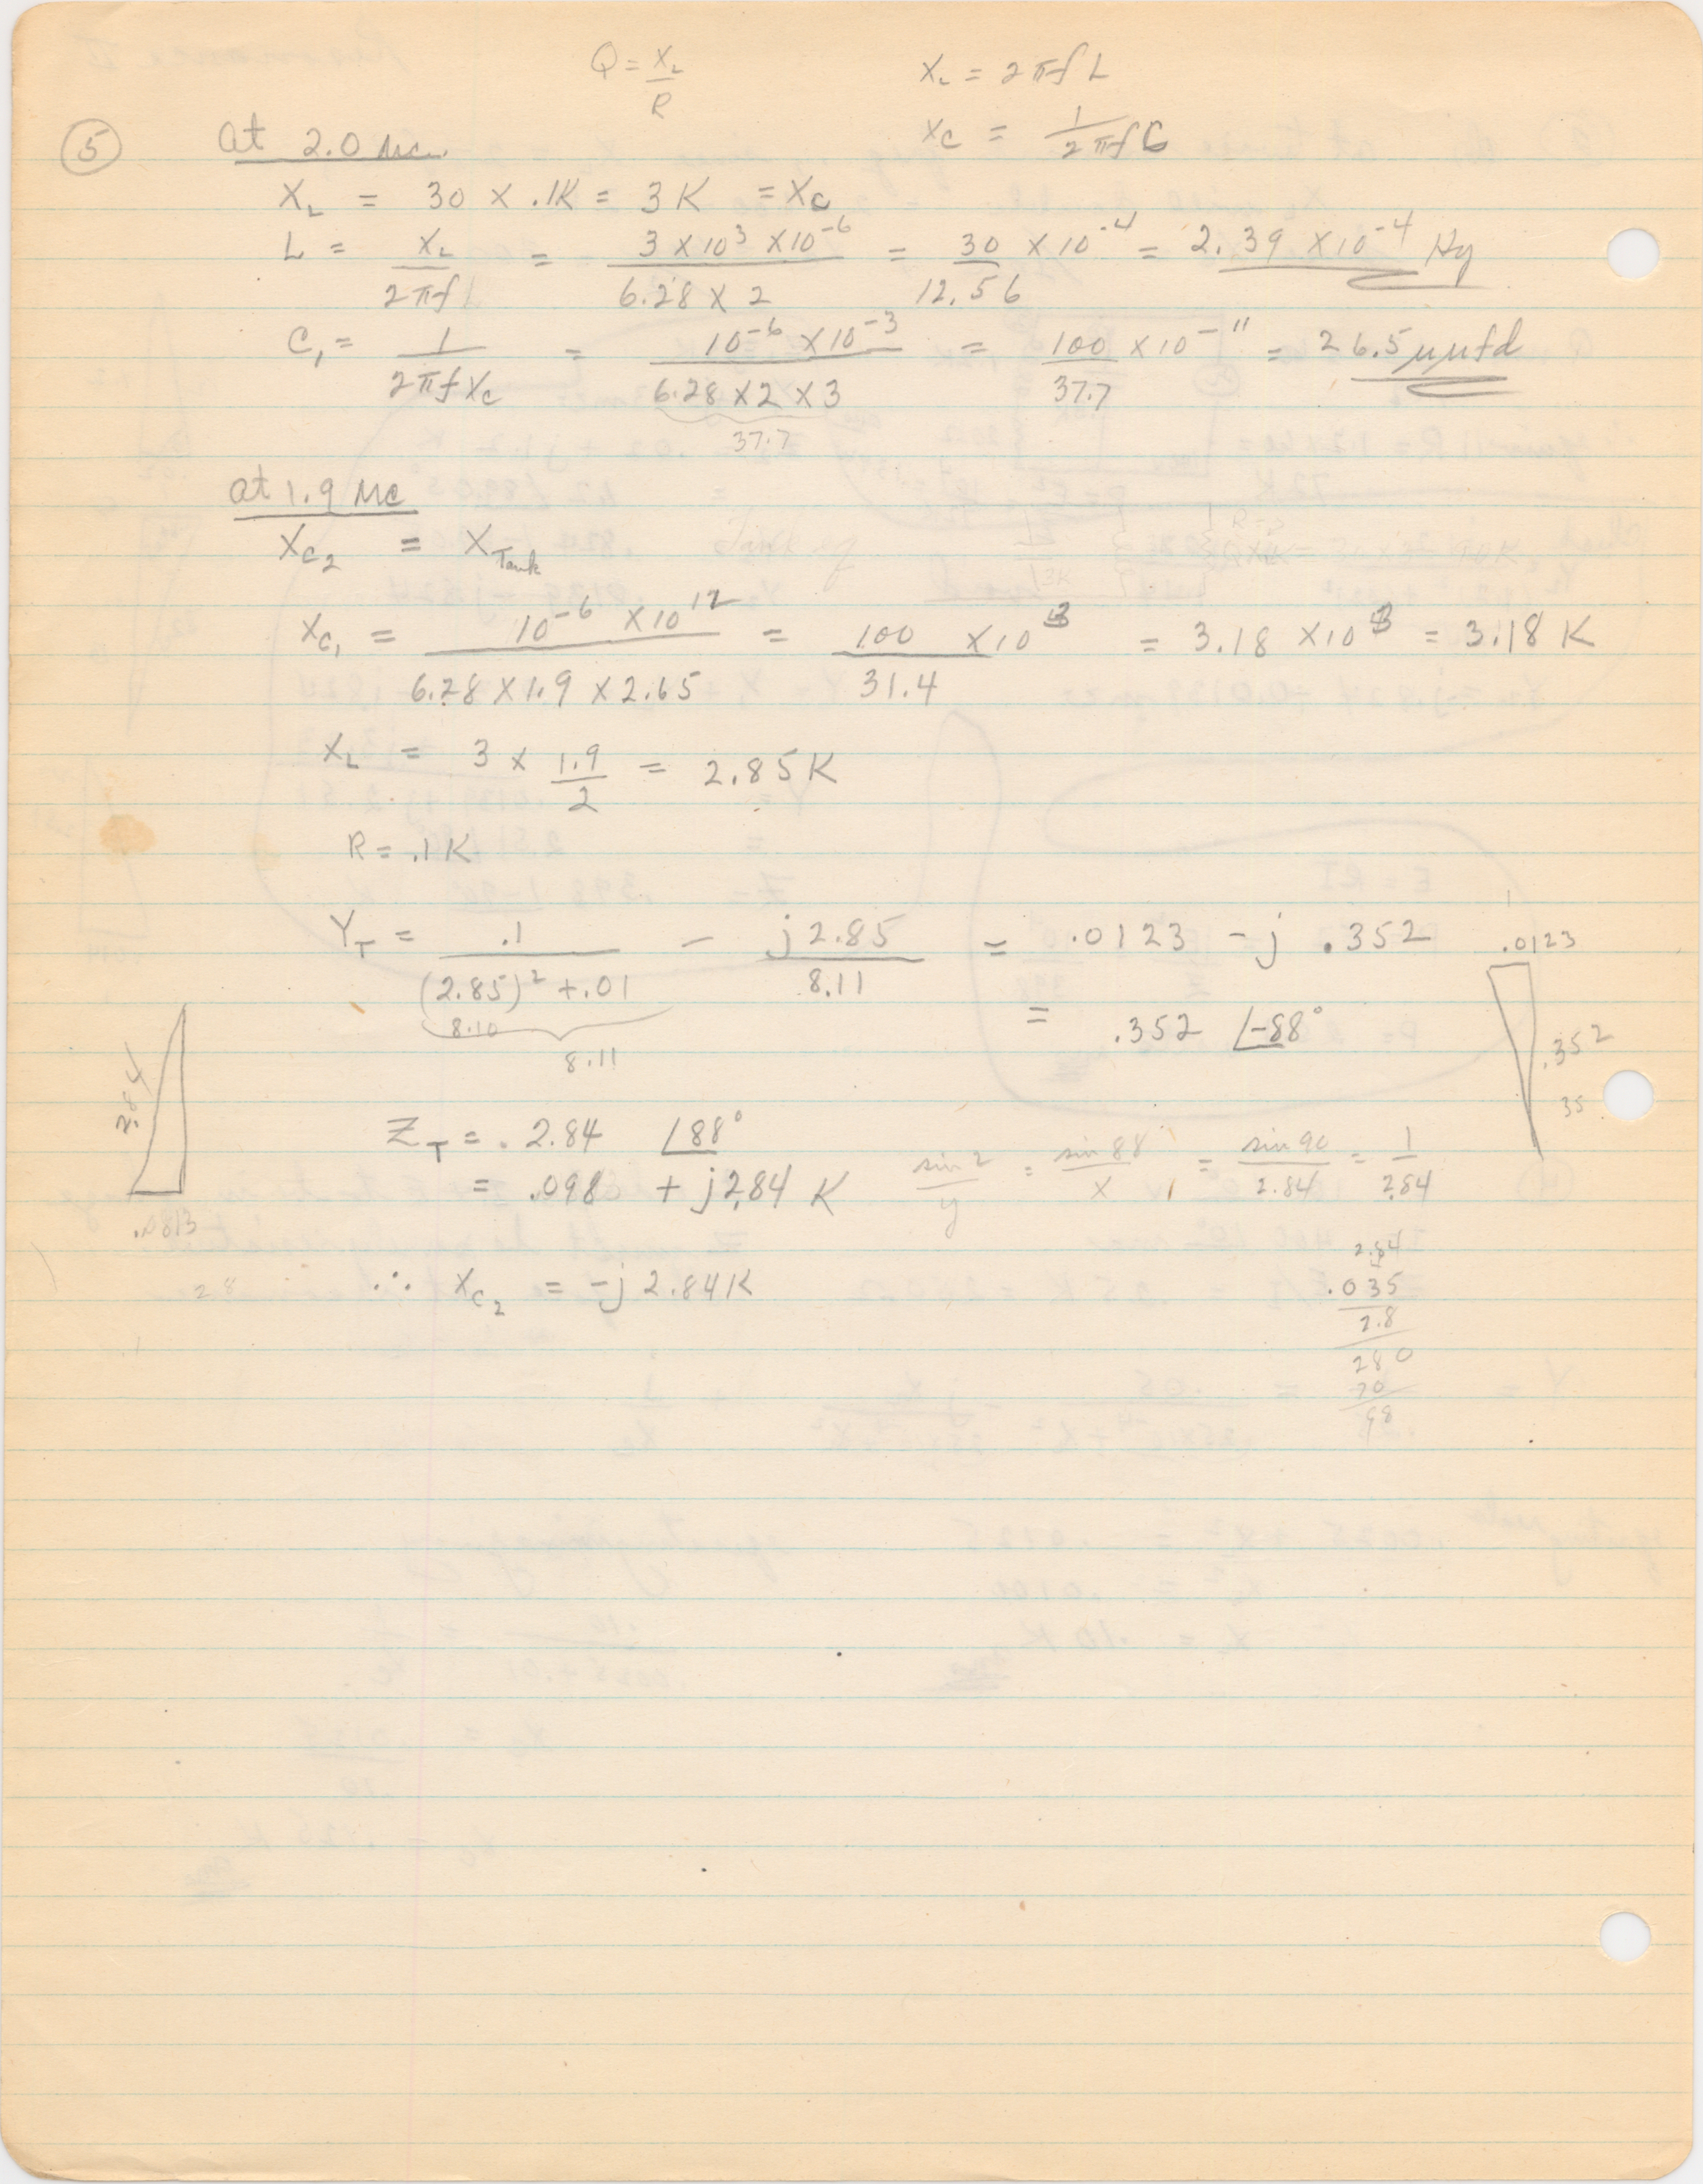 Q = X_L / R
X_L = 2πfL
X_C = 1 / 2πfC
⑤ At 2.0 Mc.
X_L = 30 × .1K = 3K = X_C
L = X_L / 2πf = 3 × 10³ × 10⁻⁶ / 6.28 × 2 = 30 / 12.56 × 10⁻⁴ = 2.39 × 10⁻⁴ Hy
C₁ = 1 / 2πfX_C = 10⁻⁶ × 10⁻³ / 6.28 × 2 × 3 = 100 / 37.7 × 10⁻¹¹ = 26.5 μμfd
37.7
at 1.9 Mc
X_C₂ = X_Tank
X_C₁ = 10⁻⁶ × 10¹² / 6.28 × 1.9 × 2.65 = 100 / 31.4 × 10³ = 3.18 × 10³ = 3.18 K
X_L = 3 × 1.9 / 2 = 2.85 K
R = .1K
Y_T = .1 / (2.85)² + .01 − j 2.85 / 8.11 = .0123 − j .352
8.10
8.11
= .352 ∠−88°
.0123
.352
35
2.84
.0813
Z_T = . 2.84 ∠88°
= .098 + j2.84 K
sin 2 / y = sin 88 / x = sin 90 / 2.84 = 1 / 2.84
∴ X_C₂ = −j 2.84K
28
2.84
.035
2.8
280
70
98